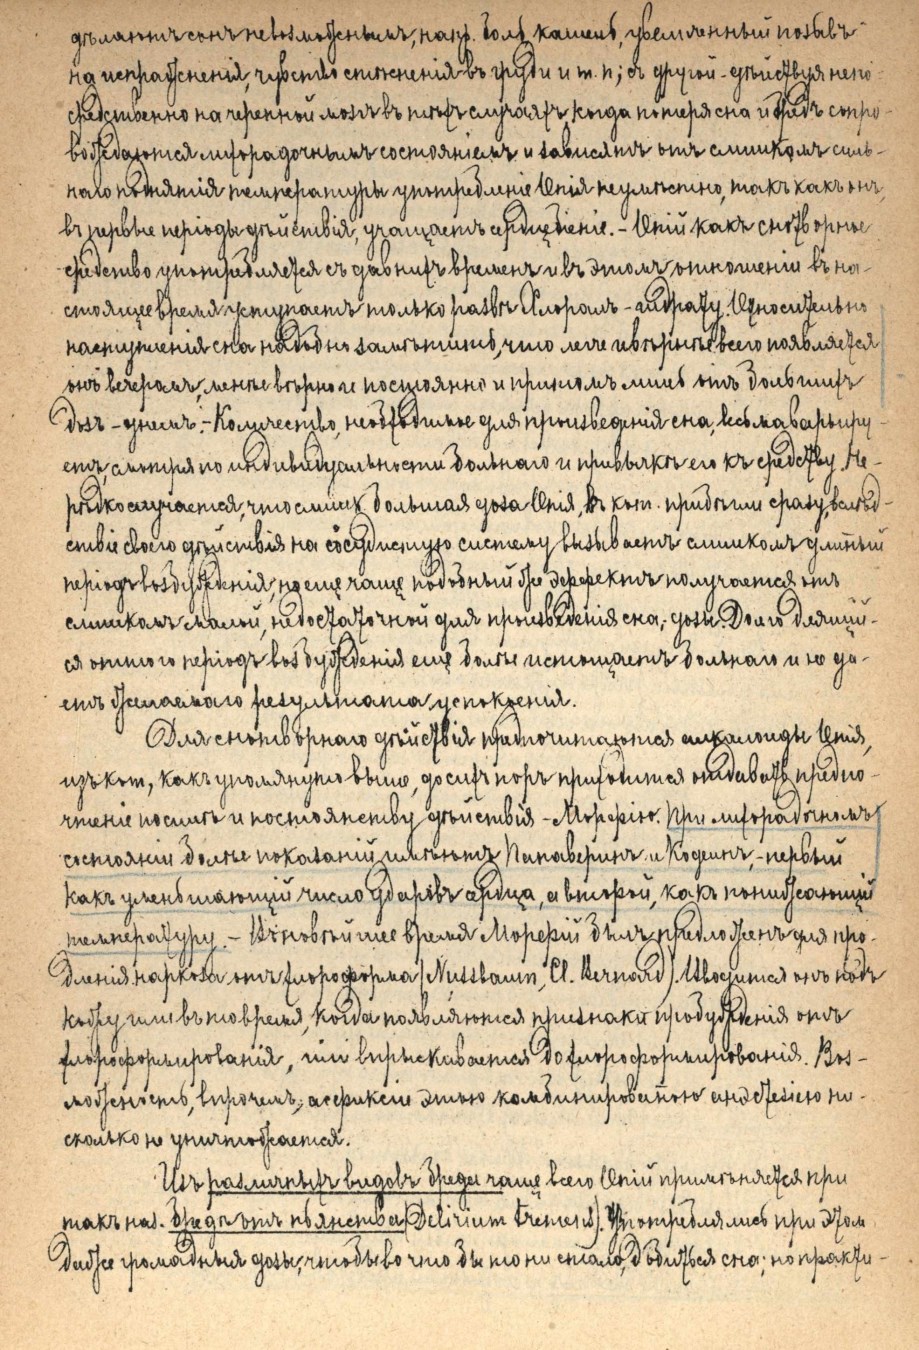 дѣлаютъ сонъ невозможнымъ, напр. боль, кашель, убеленный позывъ
на испражненія, чувство стѣсненія въ груди и т. п.; съ другой – дѣйствуя непо-
средственно на черепной мозгъ въ тѣхъ случаяхъ, когда потеря сна и бредъ сопро-
вождаются лихорадочнымъ состояніемъ и зависятъ отъ слишкомъ силь-
наго поднятія температуры употребленіе Опія неумѣстно, такъ какъ онъ,
въ первые періоды дѣйствія, учащаетъ сердцебіеніе. – Опій какъ снотворное
средство употребляется съ давнихъ временъ и въ этомъ отношеніи въ на-
стоящее время уступаетъ только развѣ Хлоралъ-гидрату. Относительно
наступленія сна надобно замѣтить, что легче и вѣрнѣе всего появляется
онъ вечеромъ, менѣе вѣрно и постоянно и притомъ лишь отъ большихъ
дозъ – днемъ. – Количество, необходимое для произведенія сна, весьма варьиру-
етъ, смотря по индивидуальности больнаго и привычкѣ его къ средству. Не-
рѣдко случается, что слишк. большая доза Опія, въ кот. прибѣгли сразу, вслѣд-
ствіе своего дѣйствія на сосудистую систему вызываетъ слишкомъ длинный
періодъ возбужденія; но еще чаще подобный же эффектъ получается отъ
слишкомъ малой, недостаточной для произведенія сна, дозы. Долго длящій-
ся этого періодъ возбужденія еще болѣе истощаетъ больнаго и не да-
етъ желаемаго результата, успокоенія.
Для снотворнаго дѣйствія предпочитаются алкалоиды Опія,
изъ кот., какъ упомянуто выше, до сихъ поръ приходится отдавать предпо-
чтеніе по силѣ и постоянству дѣйствія – Морфію. При лихорадочномъ
состояніи болѣе показаній имѣютъ Папаверинъ и Кодеинъ, – первый
какъ уменьшающій число ударовъ сердца, а второй, какъ понижающій
температуру. – Въ новѣйшее время Морфій былъ предложенъ для про-
дленія наркоза отъ хлороформа (Nussbaum, Cl. Bernard). Вводится онъ подъ
кожу или въ то время, когда появляются признаки пробужденія отъ
хлороформированія, или впрыскивается до хлороформированія. Воз-
можность, впрочемъ, асфиксіи этою комбинированною анэстезіею ни-
сколько не уничтожается.
Изъ различныхъ видовъ бреда чаще всего Опій примѣняется при
такъ наз. бредѣ отъ пьянства (Delirium tremens). Употреблялись при этомъ
даже громадныя дозы, чтобы во что бы то ни стало, добиться сна; но практи-